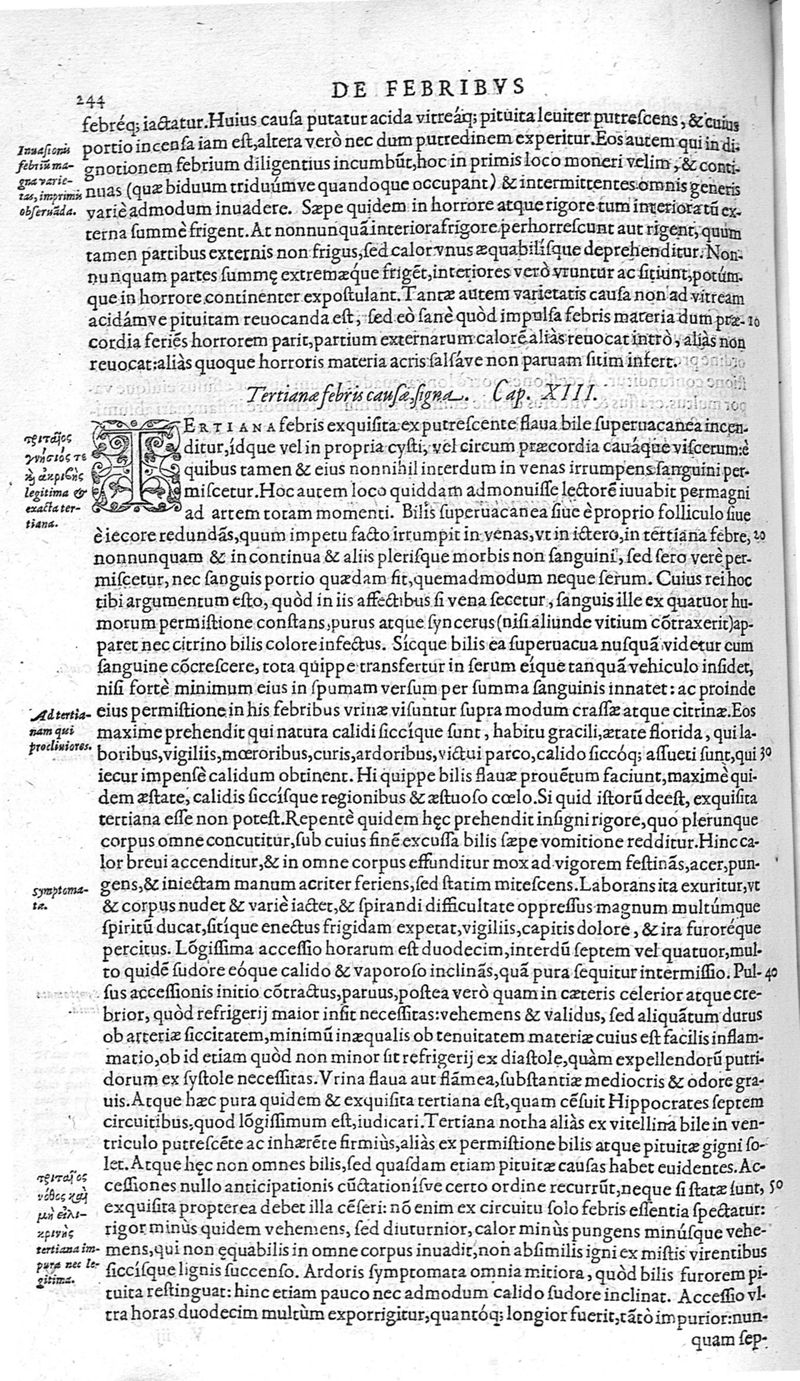 244
DE FEBRIBVS
febréq; iactatur. Huius causa putatur acida vitreáq; pituita leuiter putrescens, & cuius
portio incensa iam est, altera verò nec dum putredinem experitur. Eos autem qui in di-
gnotionem febrium diligentius incumbūt, hoc in primis loco moneri velim, & conti-
nuas (quæ biduum triduúmve quandoque occupant) & intermittentes omnis generis
variè admodum inuadere. Sæpe quidem in horrore atque rigore tum interiora tū ex-
terna summè frigent. At nonnunquā interiora frigore perhorrescunt aut rigent, quum
tamen partibus externis non frigus, sed calor vnus æquabilísque deprehenditur. Non-
nunquam partes summę extremæque frigēt, interiores verò vruntur ac sitiunt, potúm-
que in horrore continenter expostulant. Tantæ autem varietatis causa non ad vitream
acidámve pituitam reuocanda est, sed eò sanè quòd impulsa febris materia dum præ- 10
cordia feriēs horrorem parit, partium externarum calorē aliàs reuocat intrò, aliàs non
reuocat: aliàs quoque horroris materia acris salsáve non paruam sitim infert.
Inuasionis
febriū ma-
gna varie-
tas, imprimis
obseruāda.
Tertianæ febris causæ, signa. Cap. XIII.
TERTIANA febris exquisita ex putrescente flaua bile superuacanea incen-
ditur, ídque vel in propria cysti, vel circum præcordia cauáque viscerum: è
quibus tamen & eius nonnihil interdum in venas irrumpens sanguini per-
miscetur. Hoc autem loco quiddam admonuisse lectorē iuuabit permagni
ad artem totam momenti. Bilis superuacanea siue è proprio folliculo siue
è iecore redundās, quum impetu facto irrumpit in venas, vt in ictero, in tertiana febre, 20
nonnunquam & in continua & aliis plerisque morbis non sanguini, sed sero verè per-
miscetur, nec sanguis portio quædam fit, quemadmodum neque serum. Cuius rei hoc
tibi argumentum esto, quòd in iis affectibus si vena secetur, sanguis ille ex quatuor hu-
morum permistione constans, purus atque syncerus (nisi aliunde vitium cōtraxerit) ap-
paret nec citrino bilis colore infectus. Sicque bilis ea superuacua nusquā videtur cum
sanguine cōcrescere, tota quippe transfertur in serum eíque tanquā vehiculo insidet,
nisi fortè minimum eius in spumam versum per summa sanguinis innatet: ac proinde
eius permistione in his febribus vrinæ visuntur supra modum crassæ atque citrinæ. Eos
maxime prehendit qui natura calidi siccíque sunt, habitu gracili, ætate florida, qui la-
boribus, vigiliis, mœroribus, curis, ardoribus, victui parco, calido siccóq; assueti sunt, qui 30
iecur impensè calidum obtinent. Hi quippe bilis flauæ prouētum faciunt, maximè qui-
dem æstate, calidis siccísque regionibus & æstuoso cœlo. Si quid istorū deest, exquisita
tertiana esse non potest. Repentè quidem hęc prehendit insigni rigore, quo plerunque
corpus omne concutitur, sub cuius finē excussa bilis sæpe vomitione redditur. Hinc ca-
lor breui accenditur, & in omne corpus effunditur mox ad vigorem festināns, acer, pun-
gens, & iniectam manum acriter feriens, sed statim mitescens. Laborans ita exuritur, vt
& corpus nudet & variè iactet, & spirandi difficultate oppressus magnum multúmque
spiritū ducat, sitíque enectus frigidam expetat, vigiliis, capitis dolore, & ira furoréque
percitus. Lōgissima accessio horarum est duodecim, interdū septem vel quatuor, mul-
to quidē sudore eóque calido & vaporoso inclinās, quā pura sequitur intermissio. Pul- 40
sus accessionis initio cōtractus, paruus, postea verò quam in cæteris celerior atque cre-
brior, quòd refrigerij maior insit necessitas: vehemens & validus, sed aliquātum durus
ob arteriæ siccitatem, minimū inæqualis ob tenuitatem materiæ cuius est facilis inflam-
matio, ob id etiam quòd non minor sit refrigerij ex diastole, quàm expellendorū putri-
dorum ex systole necessitas. Vrina flaua aut flāmea, substantiæ mediocris & odore gra-
uis. Atque hæc pura quidem & exquisita tertiana est, quam cēsuit Hippocrates septem
circuitibus, quod lōgissimum est, iudicari. Tertiana notha aliàs ex vitellina bile in ven-
triculo putrescēte ac inhærēte firmiùs, aliàs ex permistione bilis atque pituitæ gigni so-
let. Atque hęc non omnes bilis, sed quasdam etiam pituitæ causas habet euidentes. Ac-
cessiones nullo anticipationis cūctationísve certo ordine recurrūt, neque si statæ sunt, 50
exquisita propterea debet illa cēseri: nō enim ex circuitu solo febris essentia spectatur:
rigor minùs quidem vehemens, sed diuturnior, calor minùs pungens minúsque vehe-
mens, qui non ęquabilis in omne corpus inuadit, non absimilis igni ex mistis virentibus
siccísque lignis succenso. Ardoris symptomata omnia mitiora, quòd bilis furorem pi-
tuita restinguat: hinc etiam pauco nec admodum calido sudore inclinat. Accessio vl-
tra horas duodecim multùm exporrigitur, quantóq; longior fuerit, tātò impurior: nun-
quam sep-
τριταῖος
γνήσιός τε
κỳ ἀκριβής
legitima &
exacta ter-
tiana.
Ad tertia-
nam qui
procliuiores.
symptoma-
ta.
τριταῖος
νόθος καὶ
μὴ εἰλι-
κρινὴς
tertiana im-
pura nec le-
gitima.